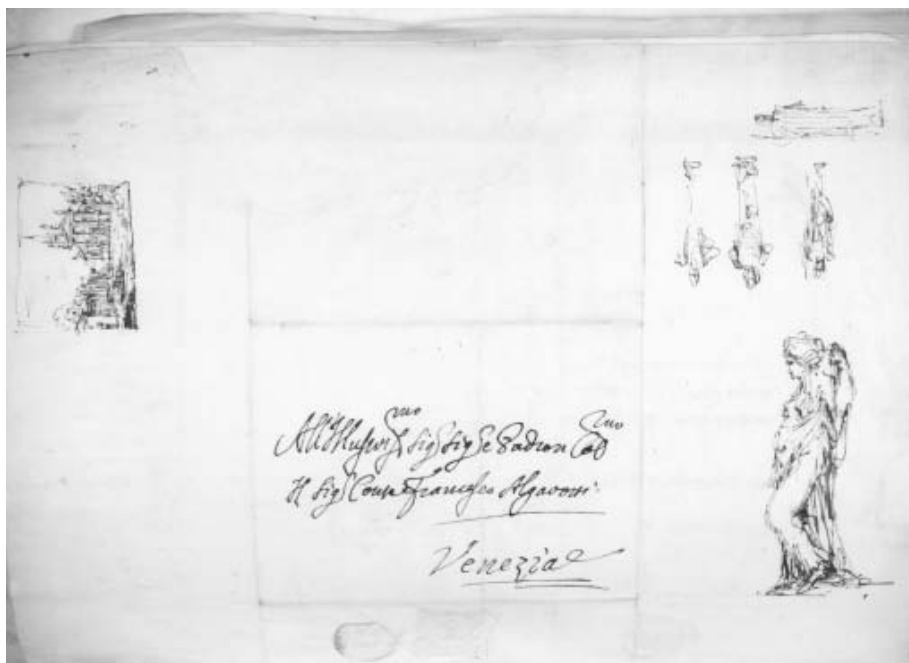 All'Illust.mo Sig.r Sig.r e Padron Col.mo
Il Sig.r Conte Francesco Algarotti
Venezia